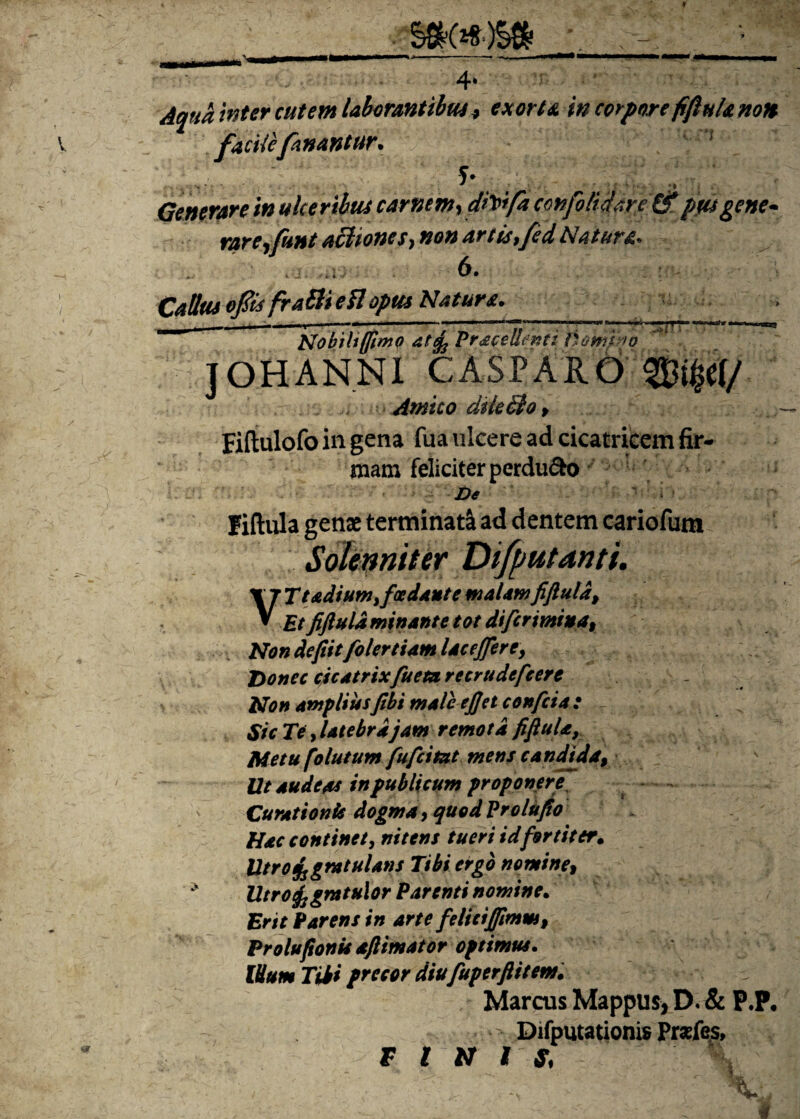 4.
Aquâ inter cutem laborantibus, exortæ in corpore fiſtulæ non
facilè ſanantur.
5.
Generare in ulceribus carnem, diviſa conſolidare & pus gene-
rare, ſunt actiones, non artis, ſed Naturæ.
6.
Callus oſsis fracti eſt opus Naturæ.
Nobiliſſimo atq; Præcellenti Domino
JOHANNI CASPARO Witzel/
Amico dilecto,
Fiſtuloſo in gena ſua ulcere ad cicatricem fir-
mam feliciter perducto
De
Fiſtula genæ terminatâ ad dentem carioſum
Solenniter Diſputanti.
VT tædium, fœdante malam fiſtulâ,
Et fiſtulâ minante tot diſcrimina,
Non deſiit ſolertiam laceſſere,
Donec cicatrix ſueta recrudeſcere
Non ampliùs ſibi malè eſſet conſcia:
Sic Te, latebrâ jam remotâ fiſtulæ,
Metu ſolutum ſuſcitat mens candida,
Ut audeas in publicum proponere
Curationis dogma, quod Proluſio
Hæc continet, nitens tueri id fortiter.
Utroq; gratulans Tibi ergò nomine,
Utroq; gratulor Parenti nomine.
Erit Parens in arte feliciſſimus,
Proluſionis æſtimator optimus.
Illum Tibi precor diu ſuperſtitem.
Marcus Mappus, D. & P.P.
Diſputationis Præſes,
FINIS.